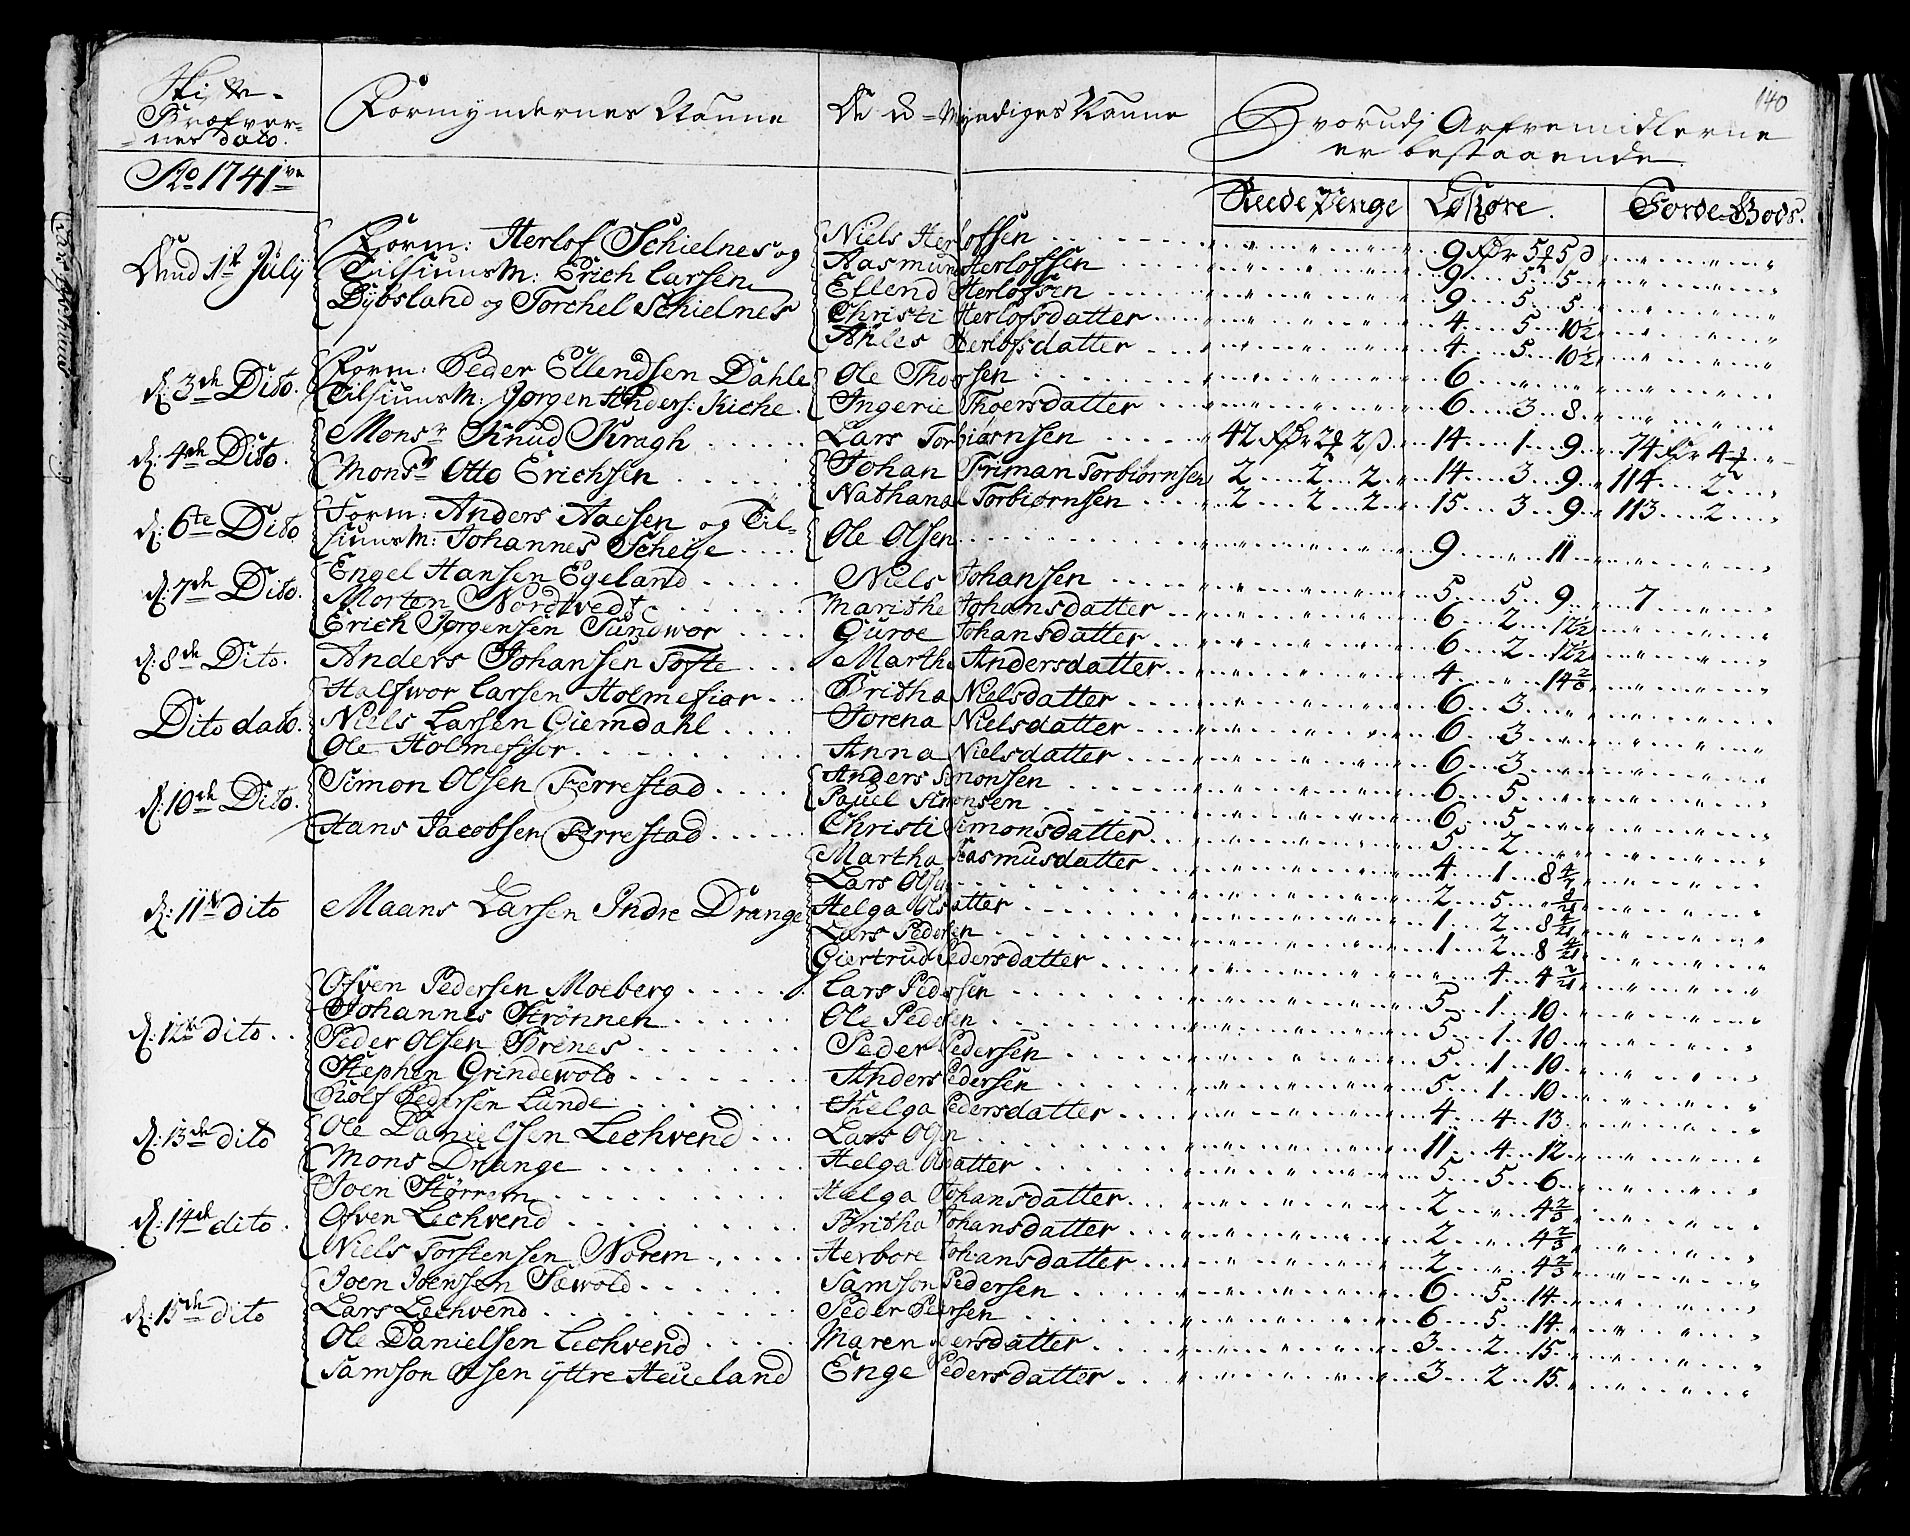 140
Skifte-
Brefver-
nes dato.
Formyndernes Naune
De U-Myndiges Naune
Hvorudj Arfvemidlerne
er bestaaende
Ao 1741ve
Reede Penge
Løsøre.
Jorde-Gods.
Form: Herlof Schielnes og
Niels Herlofsen 9 5 5
Anno 1te Julij
Tilsiunsm: Erich Larsen
Aasmund Herlofsen 9 5 5
Dybsland og Torchel Schielnes
Ellend Herlofsen 9 5 5
Christi Herlofsdatter 4 5 10½
Ahles Herlofsdatter 4 5 10½
d: 3de Dito.
Form: Peder Ellendsen Dahle
Ole Thorsen 6
Tilsiunsm: Jørgen Anders: Kiche
Ingerie Thoersdatter 6 3 8
d: 4de Dito.
Monsr Knud Kragh
Lars Torbiørnsen 42 2 2 14 1 9 74 4½
Monsr Otto Erichsen
Johan Friman Torbiørnsen 2 2 2 14 3 9 114 2
Nathanael Torbiørnsen 2 2 2 15 3 9 113 2
d: 6te Dito
Form: Anders Aaesen og Til-
siunsm: Johannes Scheije
Ole Olsen 9 11
d: 7de Dito.
Engel Hansen Egeland
Niels Johansen 5 5 9 7
Morten Nordtvedt
Marithe Johansdatter 6 2 12½
Erich Jørgensen Sundwor
Guroe Johansdatter 6 2 12½
d: 8de Dito.
Anders Johansen Tofte
Martha Andersdatter 4 14
Halfwor Larsen Holmefior
Britha Nielsdatter 6 3
Dito dato.
Niels Larsen Giemdahl
Sorena Nielsdatter 6 3
Ole Holmefior
Anna Nielsdatter 6 3
d: 10de Dito.
Simon Olsen Ferrestad
Anders Simonsen 6 5
Pauel Simonsen 6 5
Hans Jacobsen Ferrestad
Christi Simonsdatter 5 2
Martha Rasmusdatter 4 1 8 4/7
Lars Olsen 2 5 8/21
d: 11te dito
Maans Larsen Indre Drange
Helga Olsdatter 1 2 8 4/21
Lars Pedersen 1 2 8 4/21
Giertrud Pedersdatter 4 4 2/21
Ofven Pedersen Moeberg
Lars Pedersen 5 1 10
d: 12te dito.
Johannes Strønnen
Ole Pedersen 5 1 10
Peder Olsen Brenes
Peder Pedersen 5 1 10
Stephen Grindewold
Anders Pedersen 5 1 10
Rolf Pedersen Lunde
Helga Pedersdatter 4 4 13
d: 13de dito
Ole Danielsen Lechvend
Lars Olsen 11 4 12
Mons Drange
Helga Olsdatter 5 5 6
d: 14de dito.
Joen Størrem
Helga Johansdatter 2 4⅔
Ofven Lechvend
Britha Johansdatter 2 4⅔
Niels Torstensen Norem
Herbore Johansdatter 2 4⅔
d: 15de dito
Joen Joensen Sæwold
Samson Pedersen 6 5 14
Lars Lechvend
Peder Pedersen 6 5 14
Ole Danielsen Lechvend
Maren Pedersdatter 3 2 15
Samson Olsen yttre Heueland
Enge Pedersdatter 3 2 15